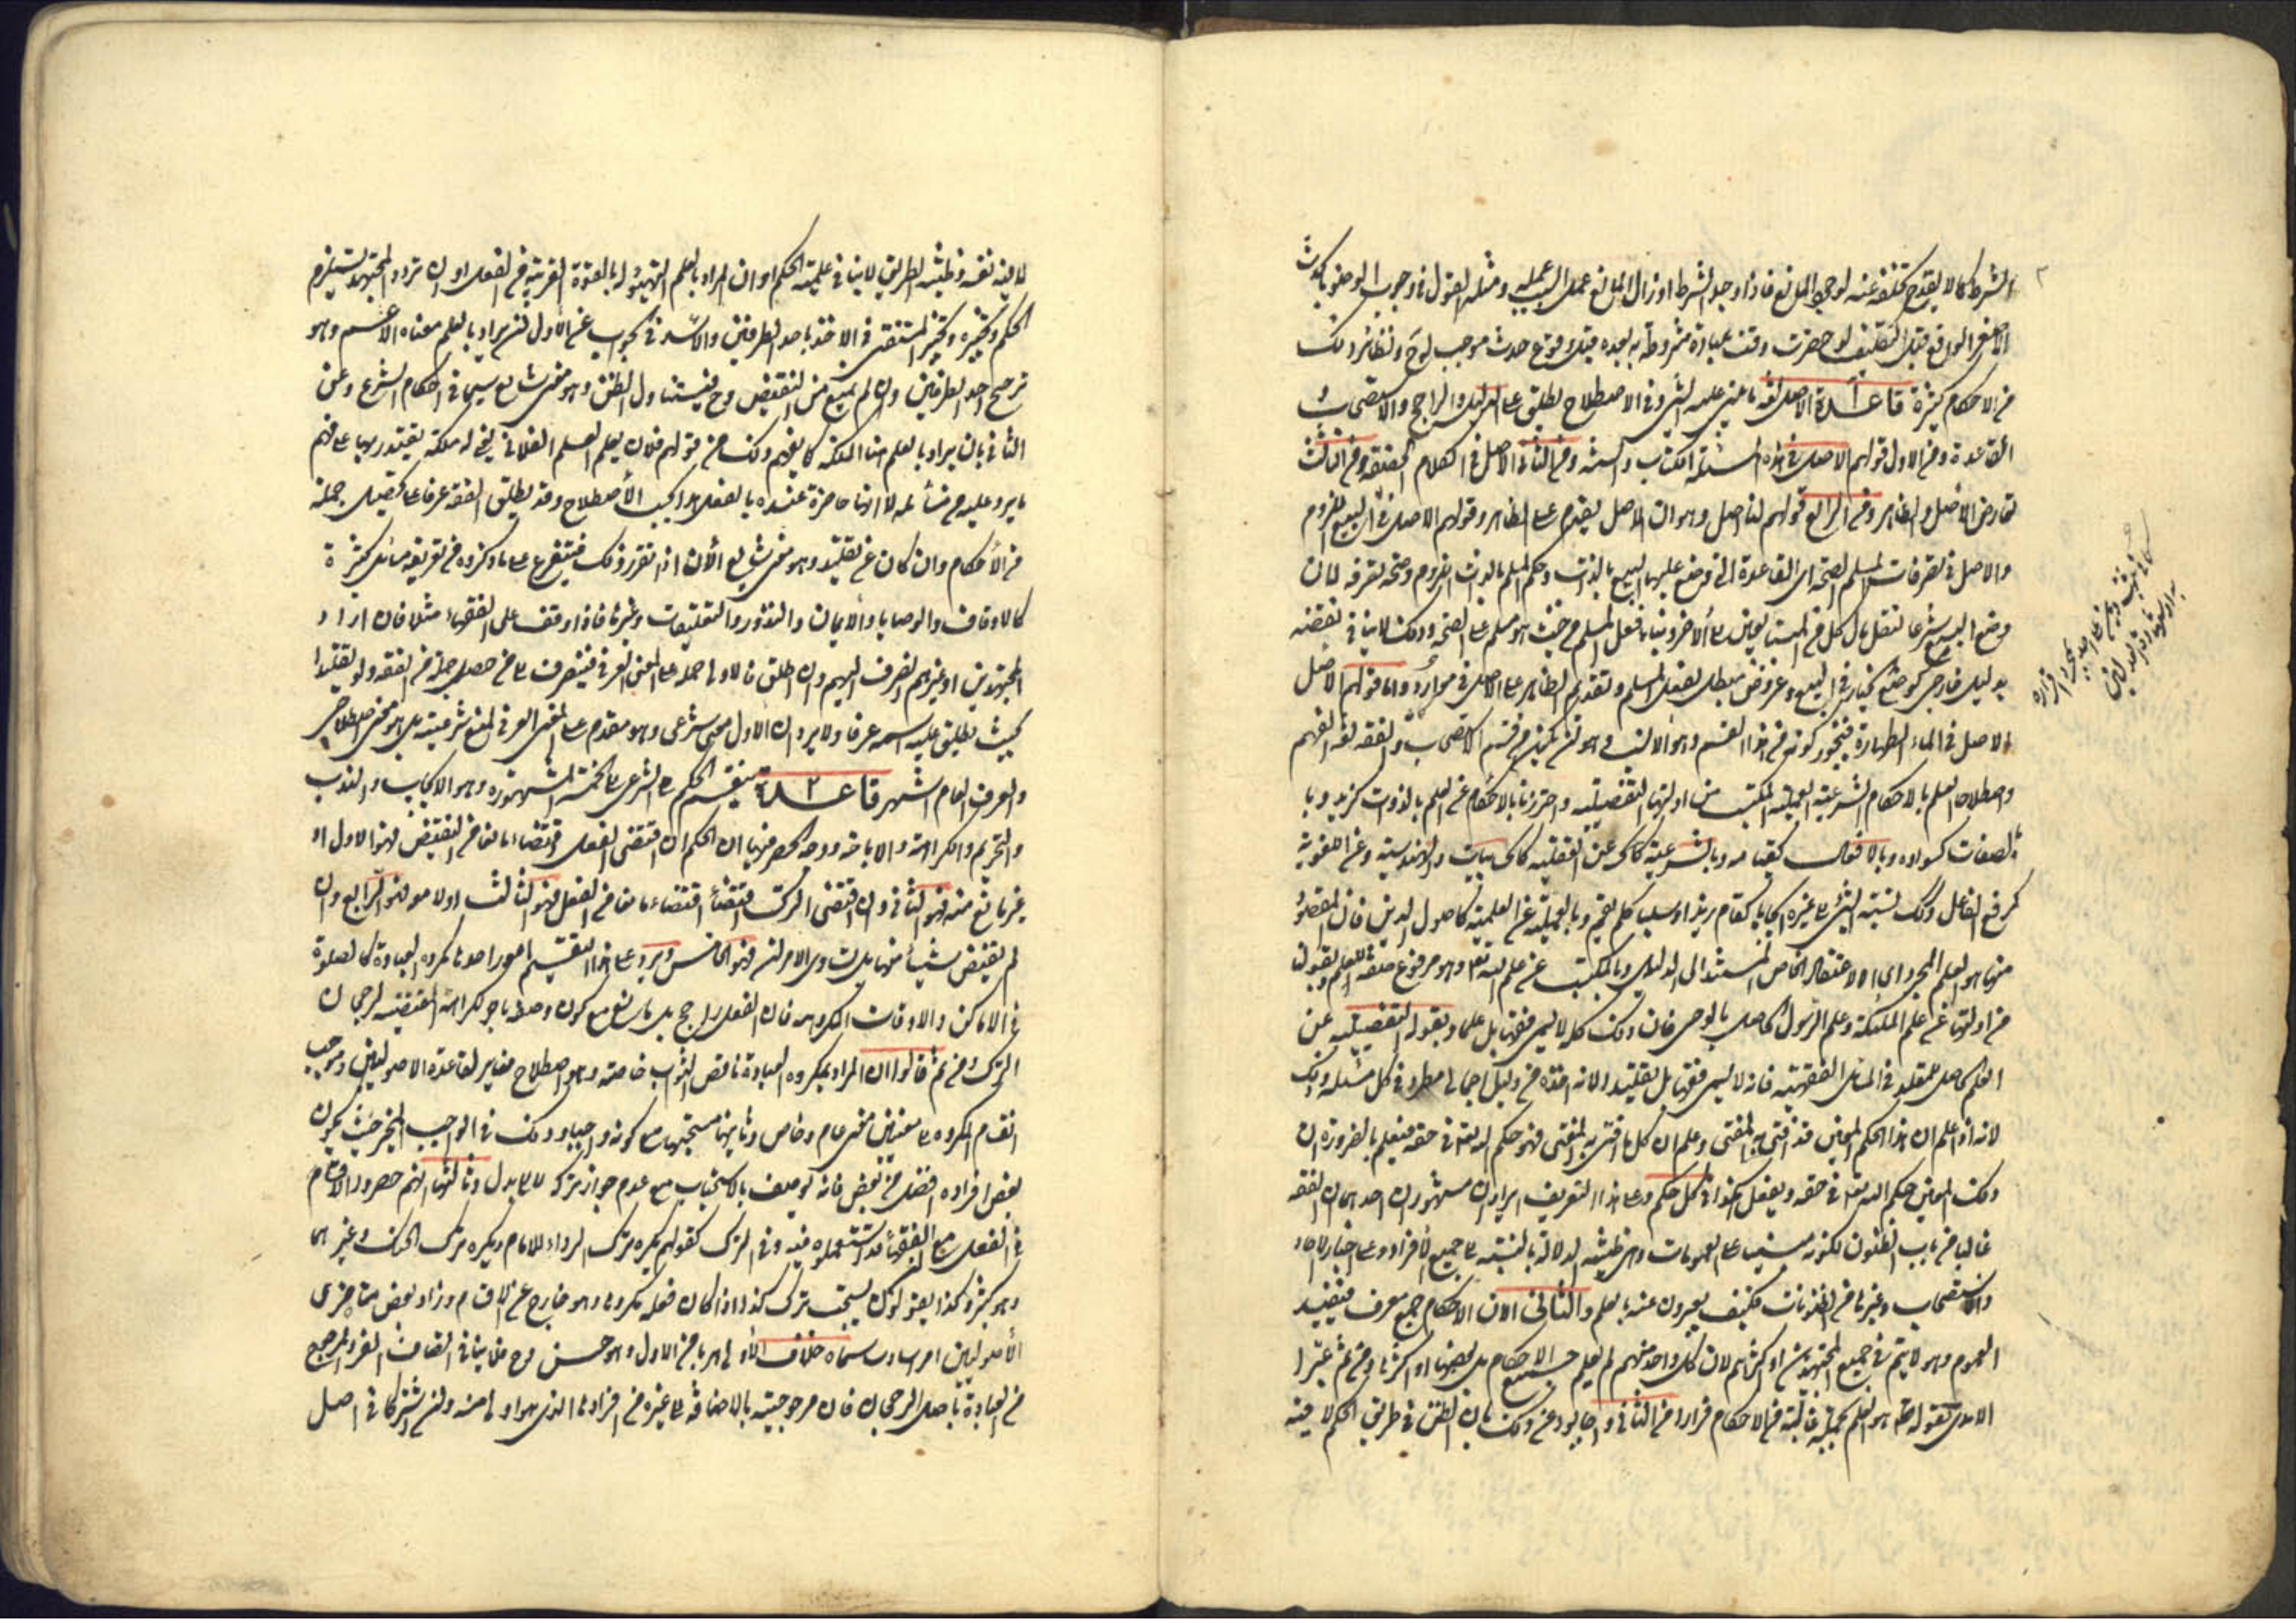 الشرط كما لا يقدح تخلفه عنه لوجود المانع فاذا وجد الشرط او زال المانع عمل السبب عمله ومثله القول في وجوب الوضوء بالحدث
الاصغر الواقع قبل التكليف لو حضرت وقت عبادة مشروطة به بعده قبل وقوع حدث موجب لو ونظائر ذلك
من الاحكام كثيرة قاعدة الاصل لغة ما يبنى عليه الشئ وفي الاصطلاح يطلق على الدليل والراجح والاستصحاب و
القاعدة ومن الاول قولهم الاصل في هذه المسئلة الكتاب والسنة ومن الثاني الاصل في الكلام الحقيقة ومن الثالث
تعارض الاصل والظاهر ومن الرابع قولهم لنا اصل وهو ان الاصل يقدم على الظاهر وقولهم الاصل في البيع اللزوم
والاصل في تصرفات المسلم الصحة اى القاعدة التي وضع عليها البيع بالذات وحكم المسلم بالذات اللزوم وصحة تصرفه لان
وضع البيع شرعا لنقل مال كل من المتبايعين الى الاخر وبناء فعل المسلم من حيث هو مسلم على الصحة وذلك لا ينافي نقضه
بدليل خارجي كوضع الخيار في البيع وعروض مبطل لفعل المسلم وتقديم الظاهر على الاصل في موارد واما قولهم الاصل
الاصل في الماء الطهارة فيجوز كونه من هذا القسم وهو الانسب وهو ان يكون من قسم الاستصحاب والفقه لغة الفهم
واصطلاحا العلم بالاحكام الشرعية العملية المكتسب من ادلتها التفصيلية واحترزنا بالاحكام عن العلم بالذوات كزيد وبا
لصفات كسواده وبالافعال كقيامه وبالشرعية كالحكم عن العقلية كالحسابيات والهندسية وعن اللغوية
كرفع الفاعل وكذلك نسبة الشئ الى غيره ايجابا كقام زيد او سلبا كلم يقم وبالعملية عن العلمية كاصول الدين فان المقصود
منها هو العلم المجرد اى الاعتقاد الخاص المستند الى الدليل وبالمكتسب عن علم الله تعالى وهو مرفوع صفة للعلم وبقولنا
من ادلتها عن علم الملئكة وعلم الرسول الحاصل بالوحى فان ذلك كله لا يسمى فقها بل علما وبقوله التفصيلية عن
العلم الحاصل للمقلد في المسائل الفقهية فانه لا يسمى فقها بل تقليدا لانه اخذه من دليل اجمالى مطرد في كل مسئلة وذلك
لانه اذا علم ان هذا الحكم المعين قد افتى به المفتى وعلم ان كل ما افتى به المفتى فهو حكم الله تعالى في حقه فيعلم بالضرورة ان
ذلك المعين حكم الله تعالى في حقه ويفعل هكذا في كل حكم وعلى هذا التعريف ايرادان مشهوران احدهما ان الفقه
غالبا من باب الظنون لكونه مبنيا على العمومات وهى ظنية الدلالة بالنسبة الى جميع الافراد وعلى اخبار الاحاد
والاستصحاب وغيرها من المظنونات فكيف يعبرون عنه بالعلم والثانى الان الاحكام جمع معرف فيفيد
العموم وهو لا يتم في جميع المجتهدين او اكثرهم لان كل واحد منهم لم يعلم جميع الاحكام بل بعضها او اكثرها ومن ثم عبّر ا
الامدى بقوله هو العلم بجملة غالبة من الاحكام فرارا من الثانى واجابوا عن ذلك بان الظن في طريق الحكم لا فيه
لا فيه نفسه وظنية الطريق لا ينافي علمية الحكم او ان المراد بالعلم التهيؤ له بالقوة القريبة من الفعل او ان تردد المجتهد يستلزم
الحكم وتخيره وتخير المستفتى في الاخذ باحد الطرفين والاسد في الجواب عن الاول ان يراد بالعلم معناه الاعم وهو
ترجيح احد الطرفين وان لم يمنع من النقيض وح فيتناول الظن وهو معنى شايع سيما في احكام الشرع وعن
الثانى بان يراد بالعلم هنا الملكة كما يفهم ذلك من قولهم فلان يعلم العلم الفلانى يعنى له ملكة يقتدر بها على فهم
ما يرد عليه من مسائله لا انها حاضرة عنده بالفعل هذا بحسب الاصطلاح وقد يطلق الفقه عرفا على تحصيل جملة
من الاحكام وان كان عن تقليد وهو معنى شايع الان اذا تقرر ذلك فيتفرع على ما ذكروه من تعريفه مسائل كثيرة
كالاوقاف والوصايا والايمان والنذور والتعليقات وغيرها فاذا وقف على الفقهاء مثلا فان اراد
المجتهدين او غيرهم انصرف اليهم وان اطلق فالاولى حمله على المعنى العرفى فينصرف الى من حصل جملة من الفقه ولو تقليدا
بحيث يطلق عليه اسمه عرفا ولا يرد ان الاول معنى شرعى وهو مقدم على المعنى العرفى لمنع شرعيته بل هو معنى اصطلاحى
والعرف العام اشهر قاعدة ٢ ينقسم الحكم الشرعى الى الخمسة المشهورة وهو الايجاب والندب
والتحريم والكراهة والاباحة ووجه الحصر فيها ان الحكم ان اقتضى الفعل اقتضاء مانعا من النقيض فهو الاول او
غير مانع منه فهو الثانى وان اقتضى الترك اقتضاء مانعا من الفعل فهو الثالث او لا معه فهو الرابع وان
لم يقتض شيئا منهما بل تساوى الامران فهو الخامس ويرد على هذا التقسيم امور احدها مكروه العبادة كالصلوة
في الاماكن والاوقات المكروهة فان الفعل راجح بل مانع مع كونه وصفا بالكراهة المقتضية لرجحان
الترك ومن ثم قالوا ان المراد بمكروه العبادة ناقص الثواب خاصة وهو اصطلاح مغاير لقاعدة الاصوليين وموجب
انقسام المكروه الى معنيين معنى عام وخاص وثانيها مستحبها مع كونه واجبا وذلك في الواجب المخير حيث يكون
بعض افراده افضل من بعض فانه يوصف بالاستحباب مع عدم جواز تركه لا الى بدل وثالثها انهم حصروا الاقسام
في الفعل مع ان الفقهاء قد استعملوه فيه وفي الترك كقولهم يكره ترك الرداء للامام ويكره ترك الحنك وغيرهما
وهو كثير وكذا يقولون يستحب ترك كذا اذا كان فعله مكروها وهو خارج عن الاقسام وزاد بعض متاخرى
الاصوليين امرا سادسا سماه خلاف الاولى هربا من الاول وهو حسن وح فلا ينافي اتصاف الفرد المرجوح
من العبادة باصل الرجحان فان مرجوحيته بالاضافة الى غيره من افرادها الذى هو اولى منه وان اشتركا في اصل